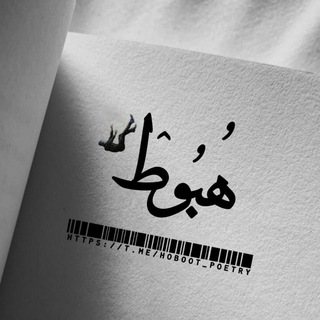 هُبُوط
HTTPS://T.ME/HOBOOT_POETRY